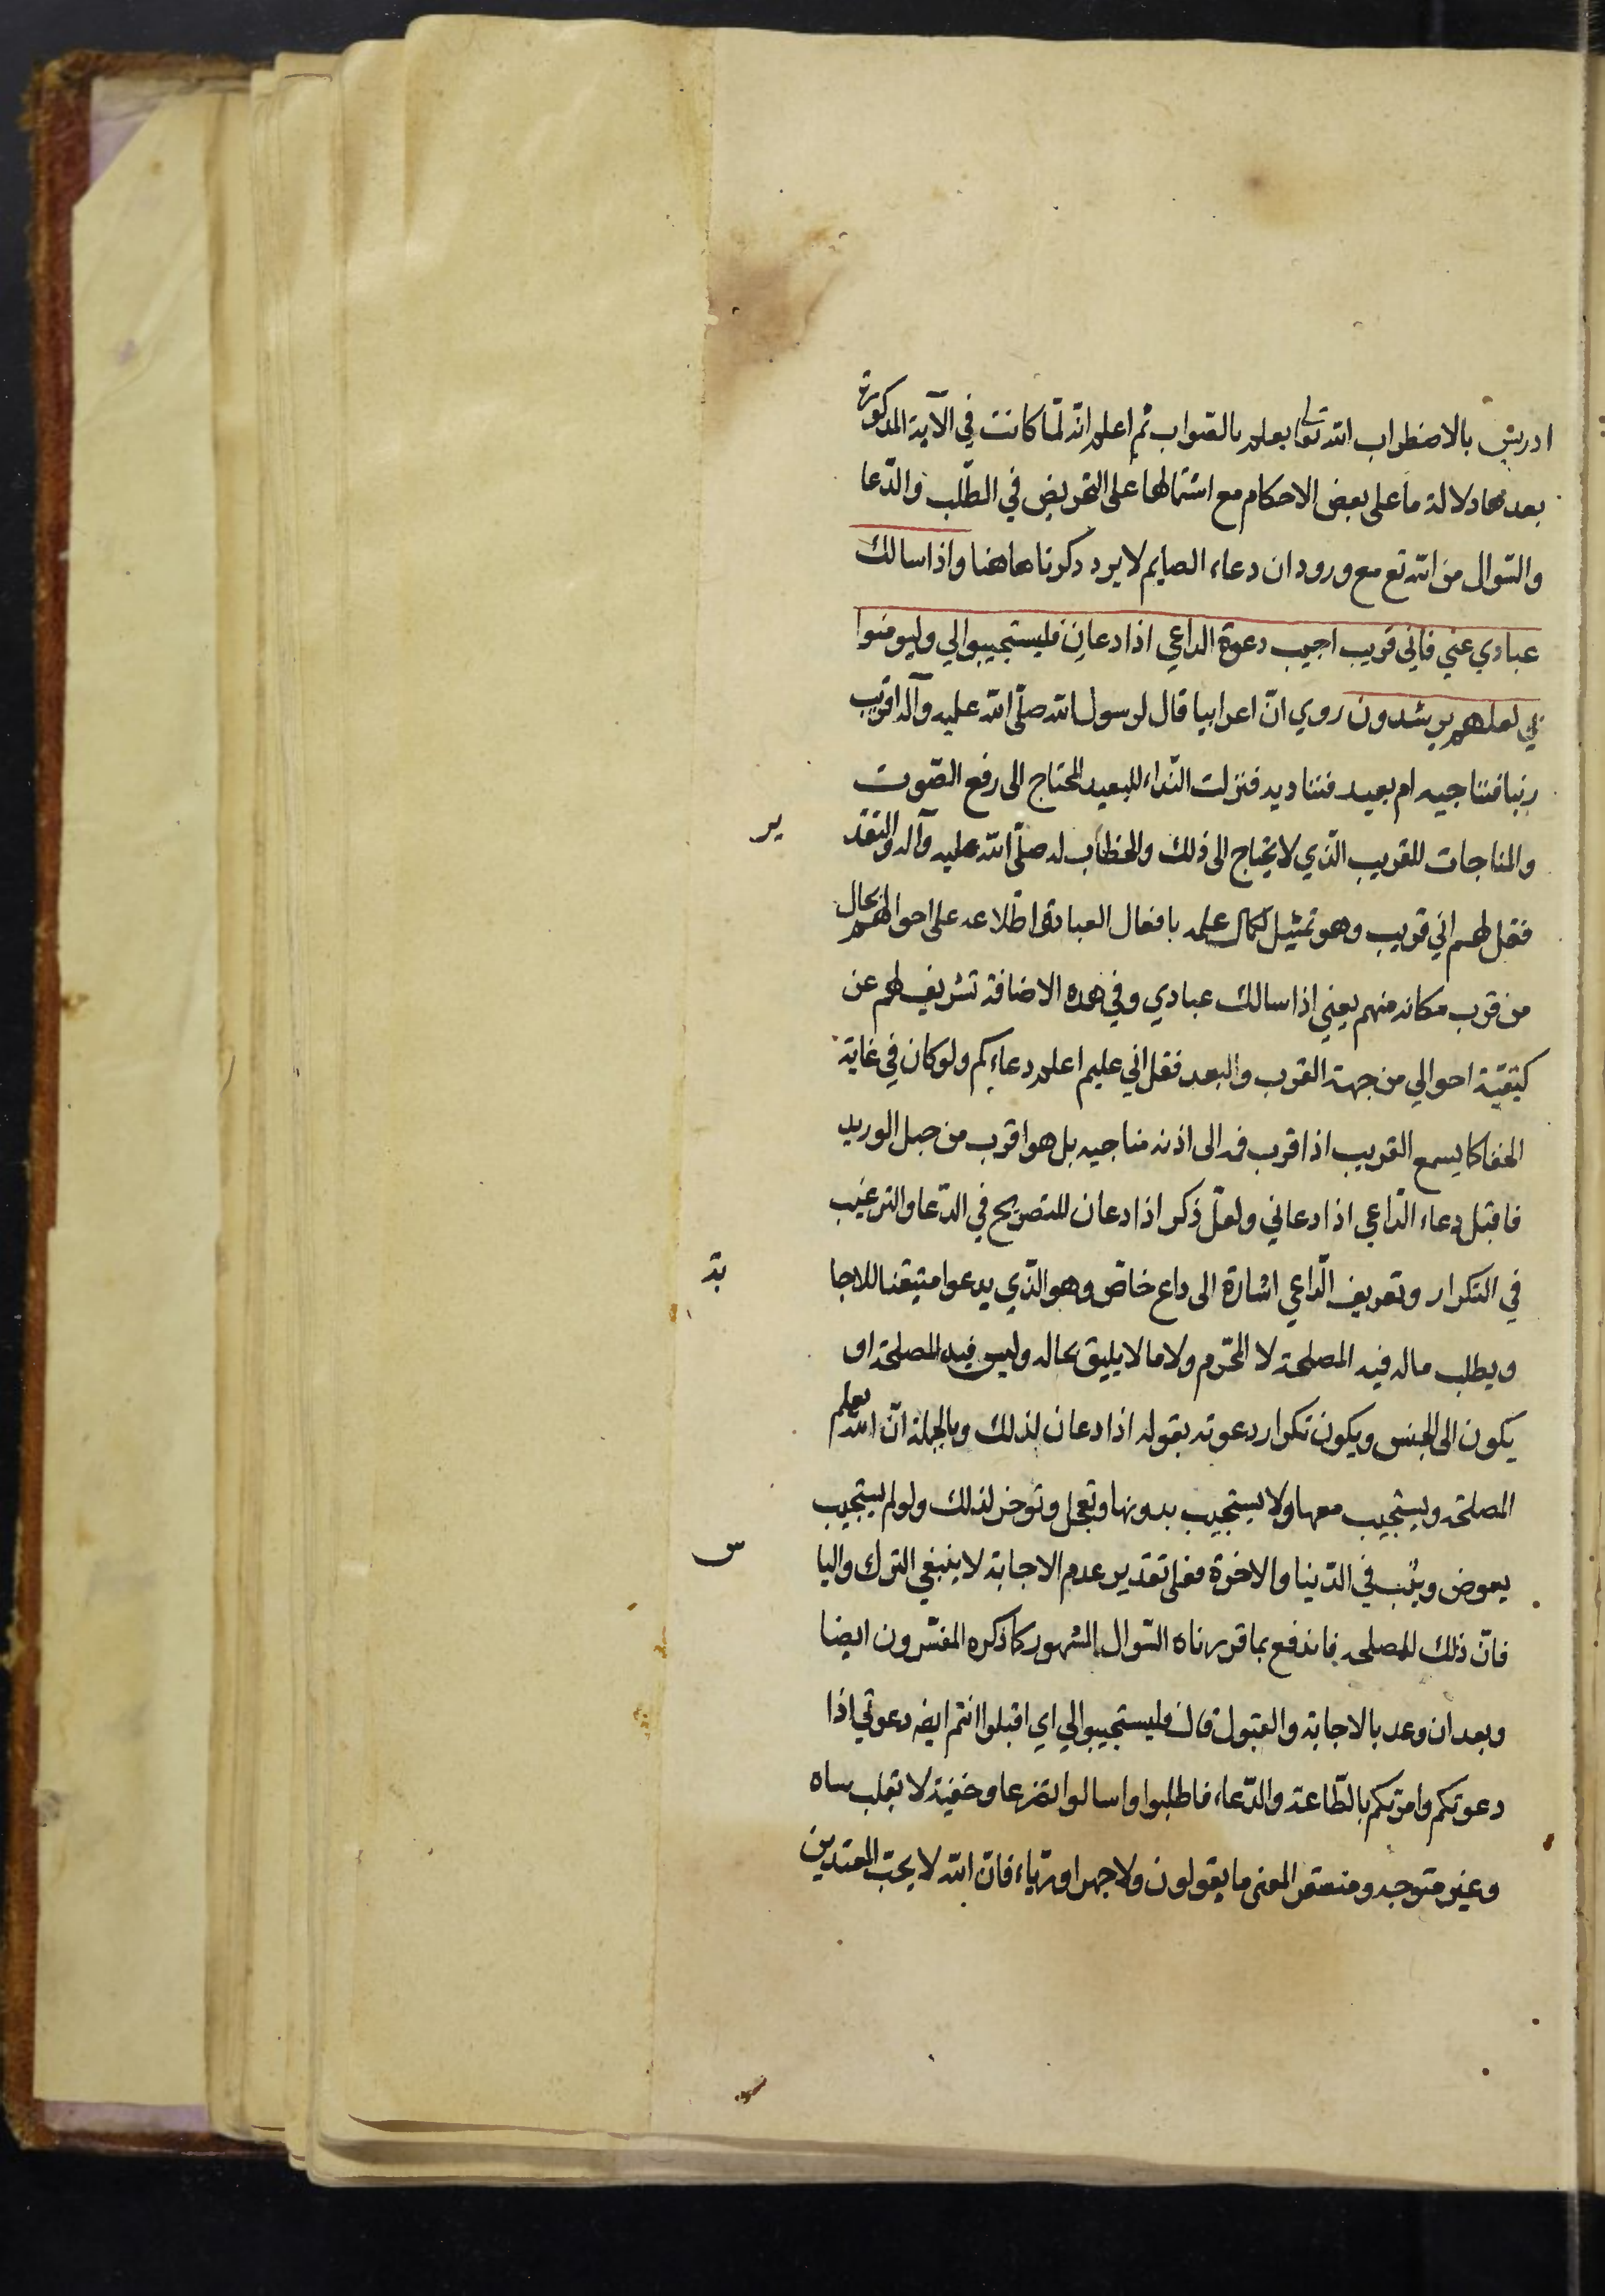 ادريس بالاضطراب الله تعالى يعلم بالصواب ثم اعلم انّه لمّا كانت في الآية المذكورة
بعدها دلالة ما على بعض الاحكام مع اشتمالها على التحريض في الطلب والدّعا
والسّوال من الله تع مع ورود ان دعاء الصايم لا يرد ذكرناها هنا واذا سالك
عبادي عني فاني قريب اجيب دعوة الداعي اذا دعان فليستجيبوا لي وليومنوا
بي لعلهم يرشدون روي انّ اعرابيا قال لرسول الله صلّى الله عليه وآله اقريب
ربنا فنناجيه ام بعيد فنناديه فنزلت النّداء للبعيد المحتاج الى رفع الصّوت
والمناجات للقريب الّذي لا يحتاج الى ذلك والخطاب له صلّى الله عليه وآله والتقد ير
فقل لهم اني قريب وهو تمثيل لكمال علمه بافعال العباد واطلاعه على احوالهم بحال
من قرب مكانه منهم يعني اذا سالك عبادي وفي هذه الاضافة تشريف لهم عن
كيفيّة احوالي من جهة القرب والبعد فقل اني عليم اعلم دعاءكم ولو كان في غاية
الخفا كما يسمع القريب اذا قرب فمه الى اذنه مناجيه بل هو اقرب من حبل الوريد
فاقبل دعاء الدّاعي اذا دعاني ولعلّ ذكر اذا دعان للتصريح في الدّعا والترغيب
في التكرار وتعريف الدّاعي اشارة الى داع خاصّ وهو الّذي يدعوا متيقنا للاجا بة
ويطلب ماله فيه المصلحة لا المحّرم ولا ما لا يليق بحاله وليس فيه المصلحة او
يكون الى الجنس ويكون تكرار دعوته بقوله اذا دعان لذلك وبالجملة انّ الله يعلم
المصلحة ويستجيب معها ولا يستجيب بدونها وتعجل وتوخر لذلك ولو لم يستجيب
يعوض ويثب في الدّنيا والاخرة فعلى تقدير عدم الاجابة لا ينبغي الترك واليا س
فانّ ذلك للمصلحة فاندفع بما قررناه السّوال المشهور كما ذكره المفسّرون ايضا
وبعد ان وعد بالاجابة والقبول قال فليستجيبوا لي اي اقبلوا انتم ايضه دعوتي اذا
دعوتكم وامرتكم بالطّاعة والدّعاء فاطلبوا واسالوا تضرعا وخفية لا بقلب ساه
وغير متوجه ومستقر المعنى ما يقولون ولا جهرا ورياء فانّ الله لا يحبّ المعتدين